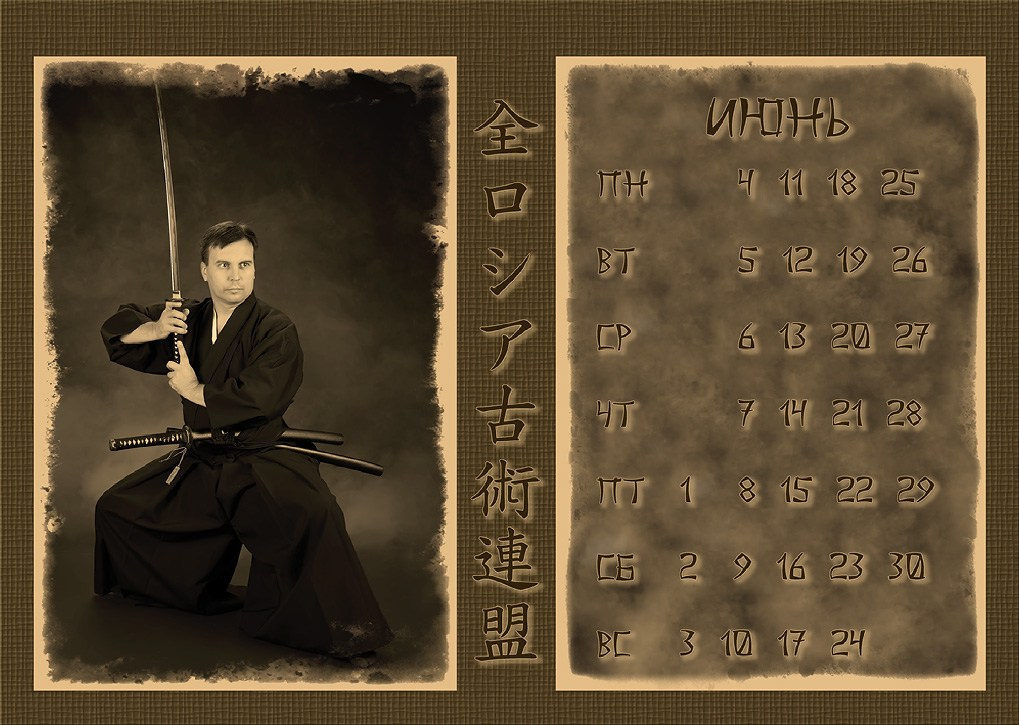 全ロシア古術連盟
ИЮНЬ
ПН 4 11 18 25
ВТ 5 12 19 26
СР 6 13 20 27
ЧТ 7 14 21 28
ПТ 1 8 15 22 29
СБ 2 9 16 23 30
ВС 3 10 17 24